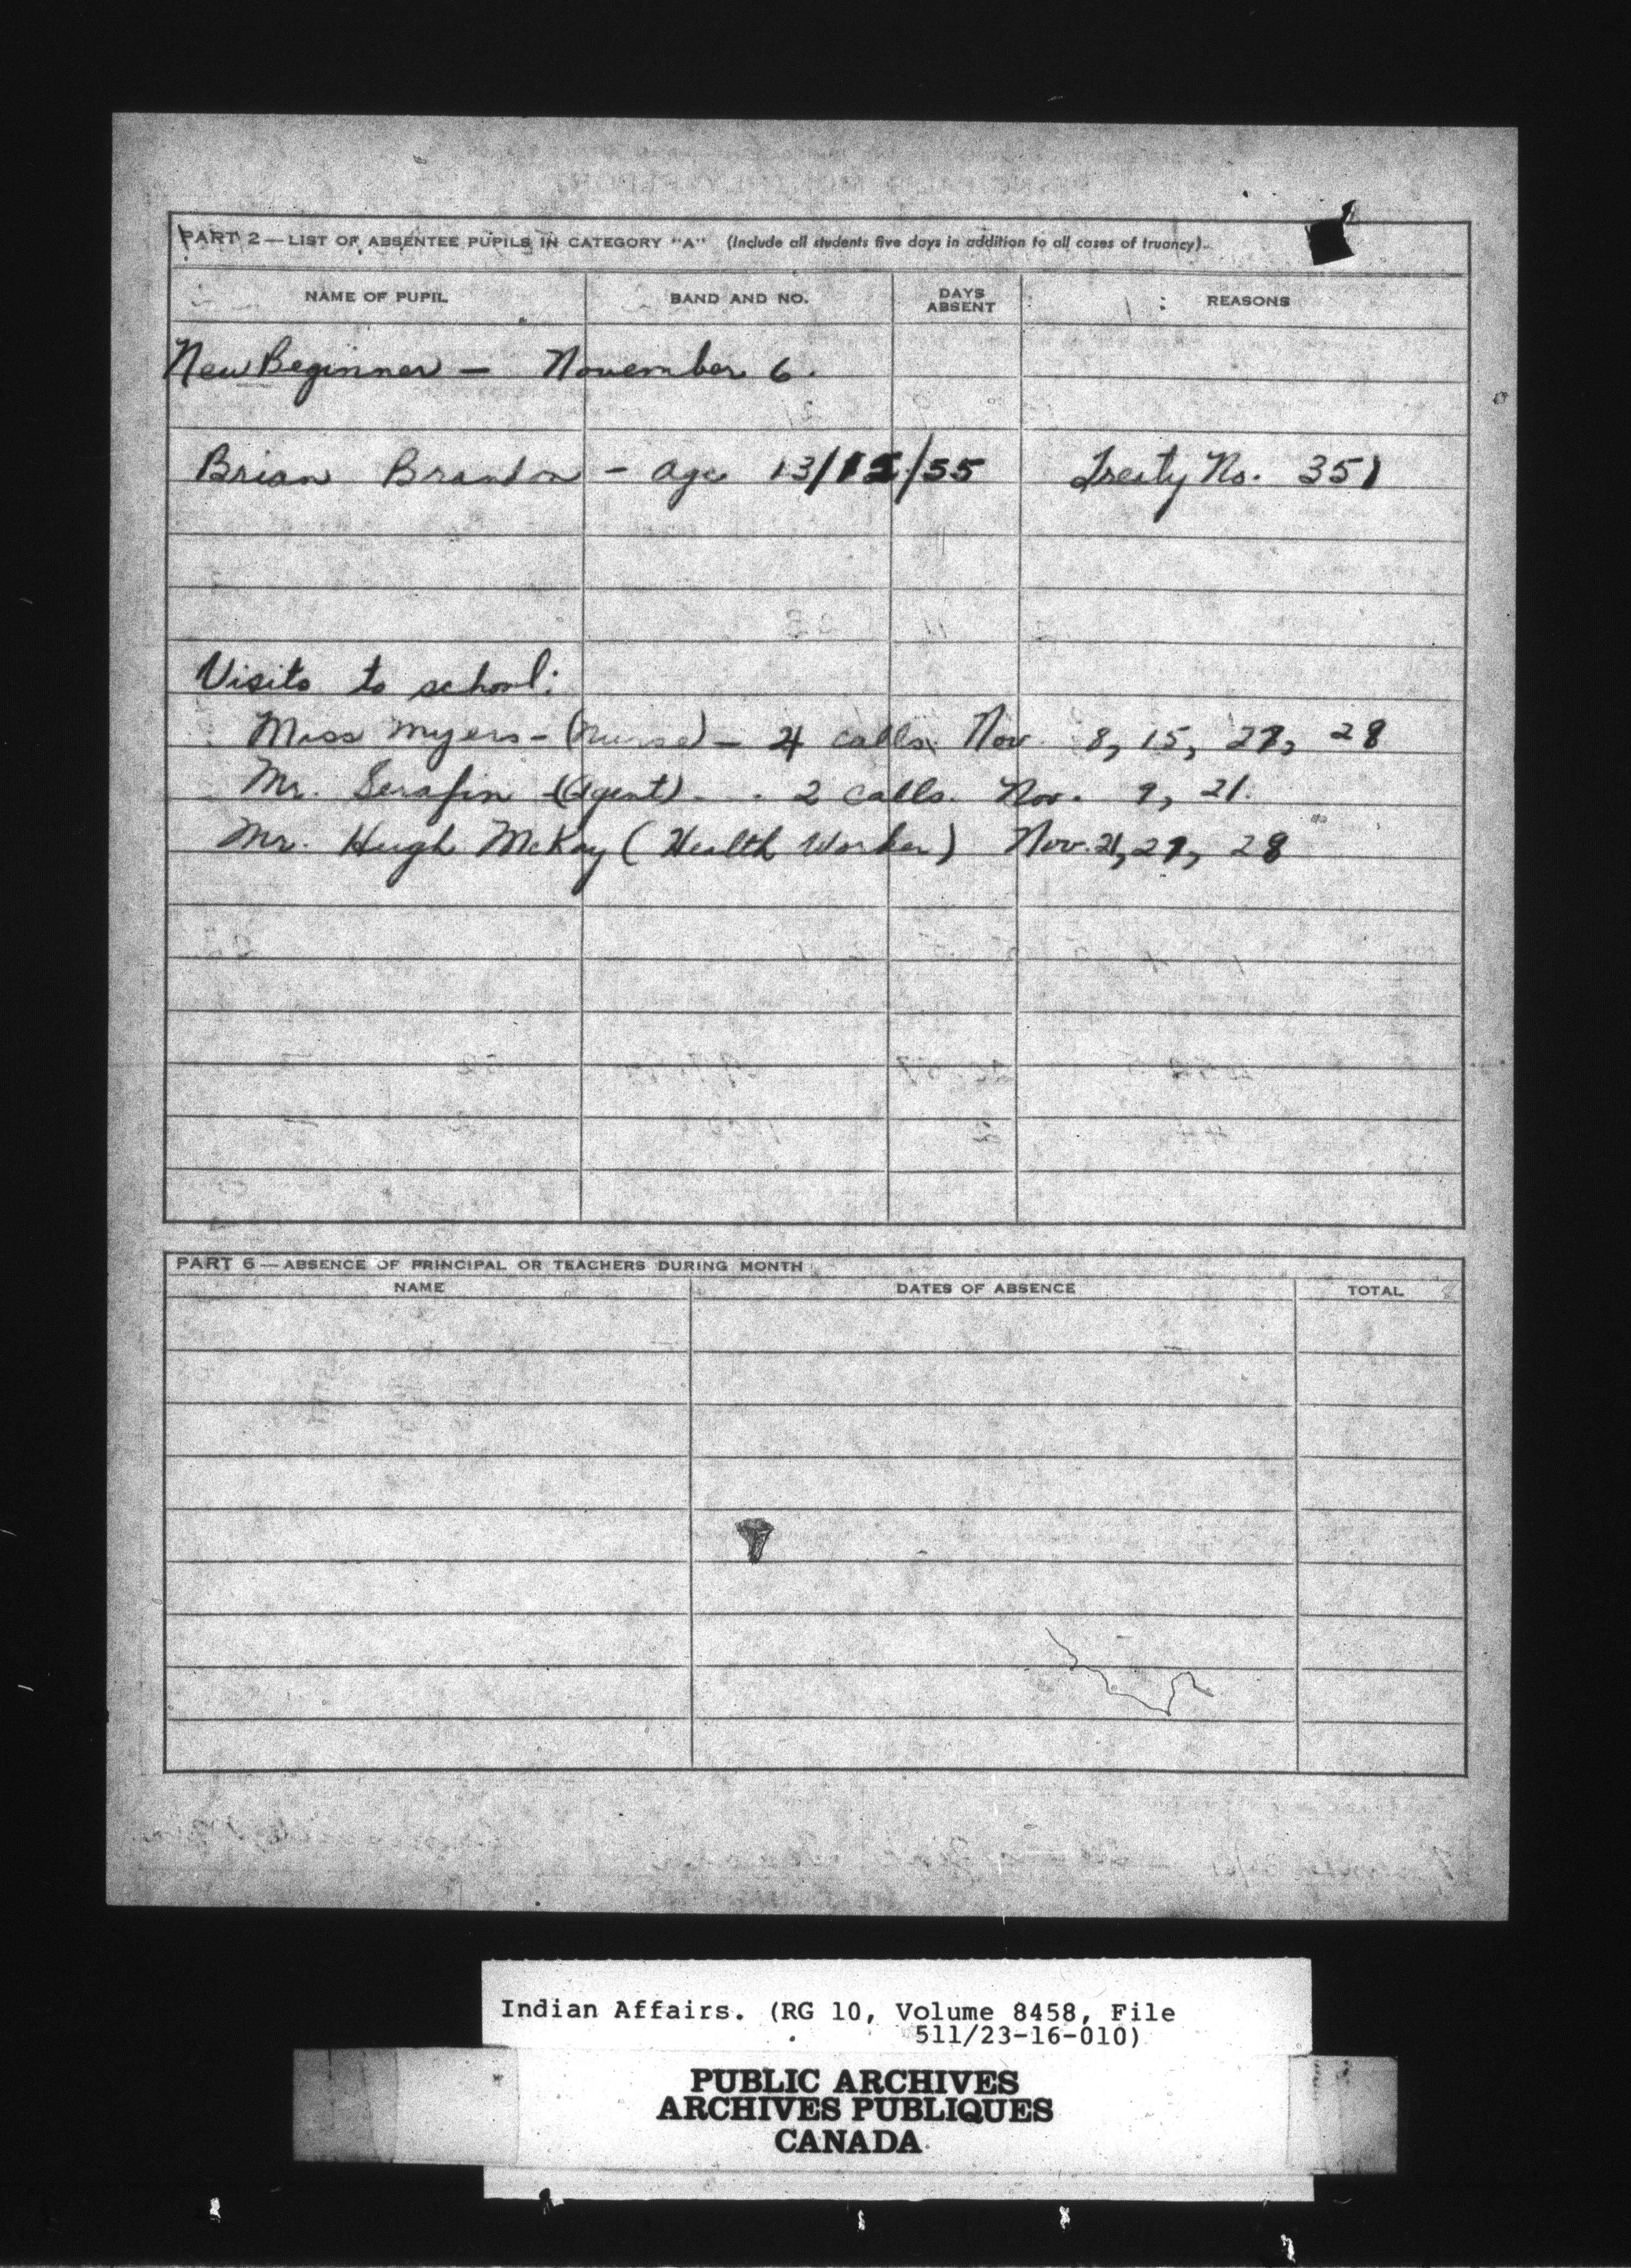 PART 2 — LIST OF ABSENTEE PUPILS IN CATEGORY "A" (Include all students five days in addition to all cases of truancy).
NAME OF PUPIL BAND AND NO. DAYS ABSENT REASONS
New Beginner — November 6.
Brian - Age 13/12/55 Treaty No. 351
Visits to school:
Miss Myers - (Nurse) - 4 calls Nov. 8, 15, 27, 28
Mr. Serafin - (Agent) - 2 calls. Nov. 9, 21.
Mr. Hugh McKay (Health Worker) Nov. 21, 27, 28
PART 6 — ABSENCE OF PRINCIPAL OR TEACHERS DURING MONTH
NAME DATES OF ABSENCE TOTAL
Indian Affairs. (RG 10, Volume 8458, File
511/23-16-010)
PUBLIC ARCHIVES
ARCHIVES PUBLIQUES
CANADA